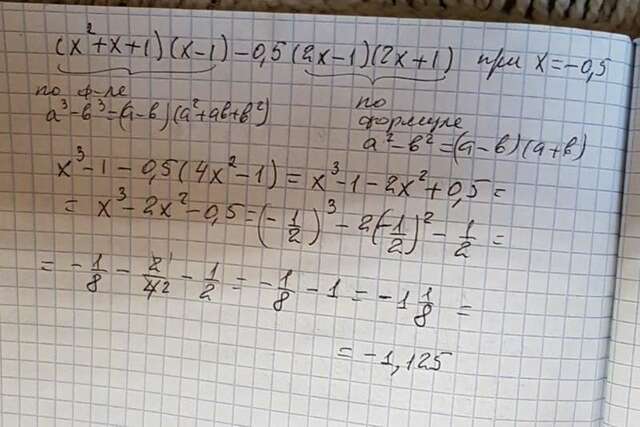 (x²+x+1)(x-1)-0,5(2x-1)(2x+1) при x=-0,5
по ф-ле
a³-b³=(a-b)(a²+ab+b²)
по
формуле
a²-b²=(a-b)(a+b)
x³-1-0,5(4x²-1)=x³-1-2x²+0,5=
=x³-2x²-0,5=(-1/2)³-2(-1/2)²-1/2=
=-1/8-2/4-1/2=-1/8-1=-1 1/8=
=-1,125